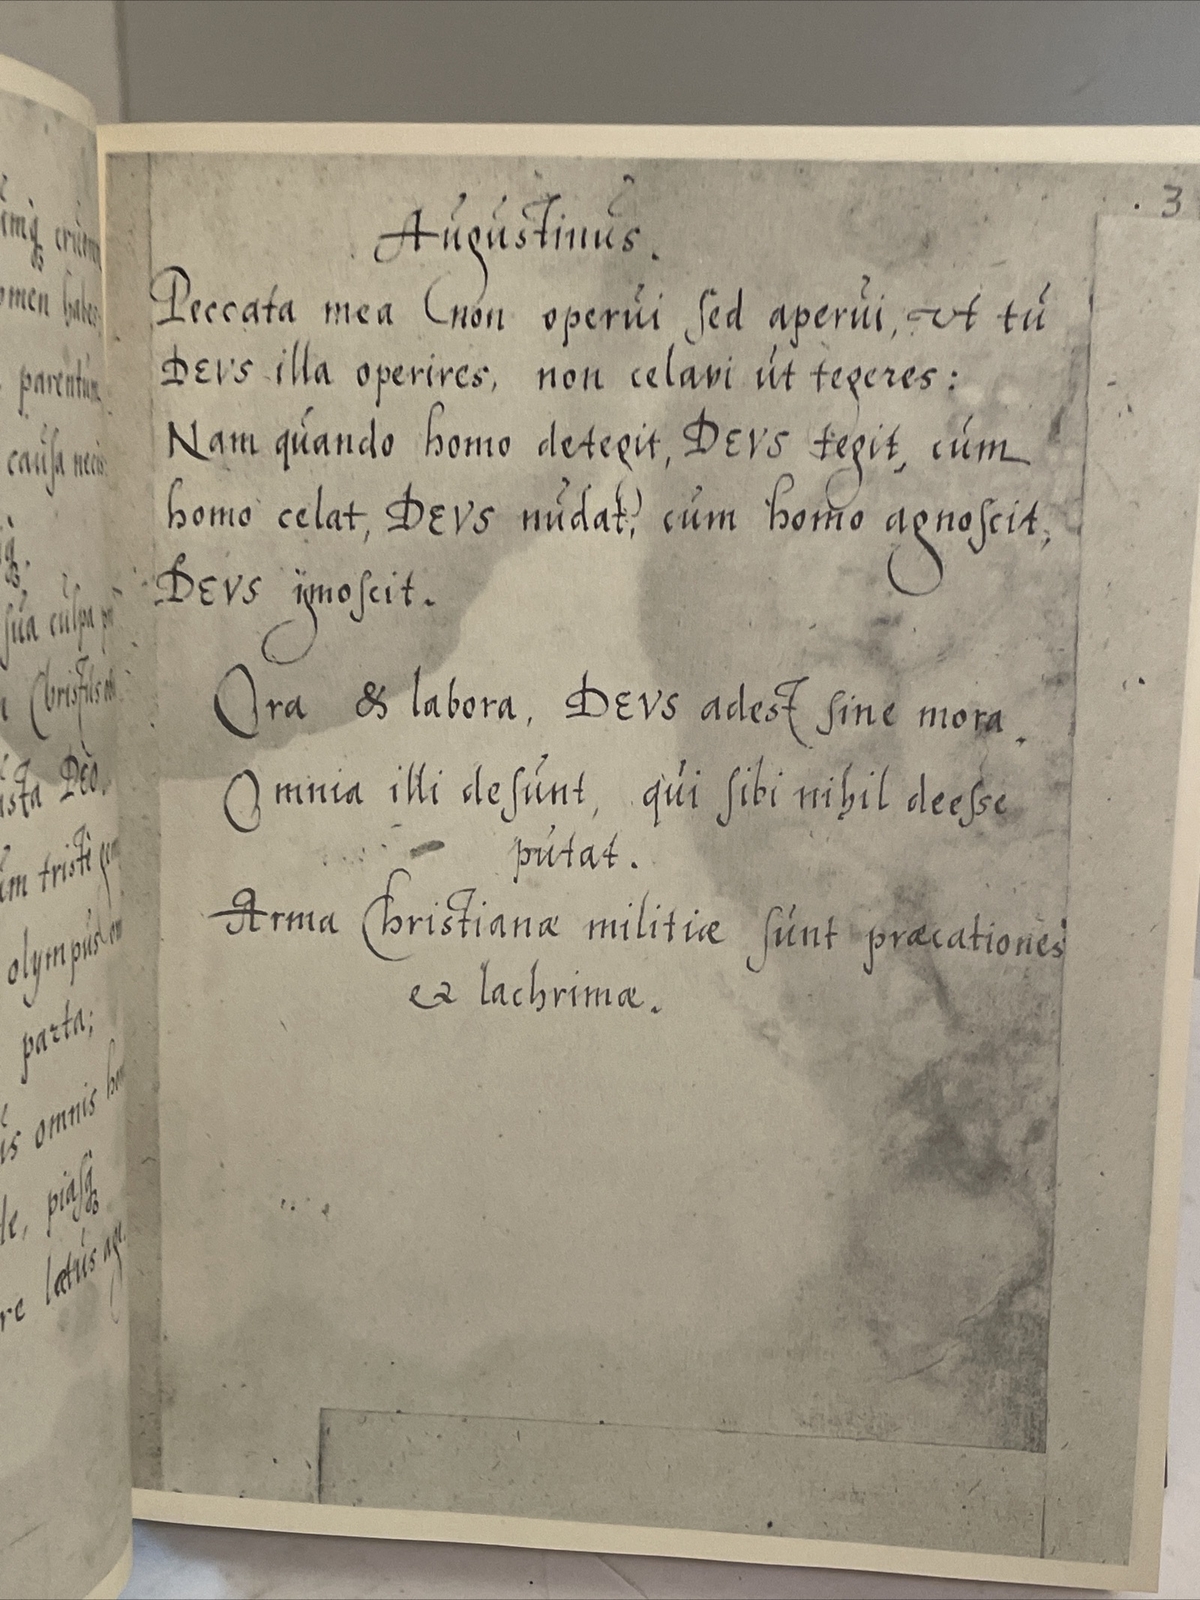 imq
omen habes
parentum
causa necis
sua culpa
Christus
ista DEO.
um tristi
olympus
parta;
is omnis
piasq
re lætus
3
Augustinus.
Peccata mea non operui sed aperui, vt tu
DEVS illa operires, non celavi ut tegeres:
Nam quando homo detegit, DEVS tegit, cum
homo celat, DEVS nudat, cum homo agnoscit,
DEVS ignoscit.
Ora & labora, DEVS adest sine mora.
Omnia illi desunt, qui sibi nihil deesse
putat.
Arma Christianæ militiæ sunt præcationes
et lachrimæ.